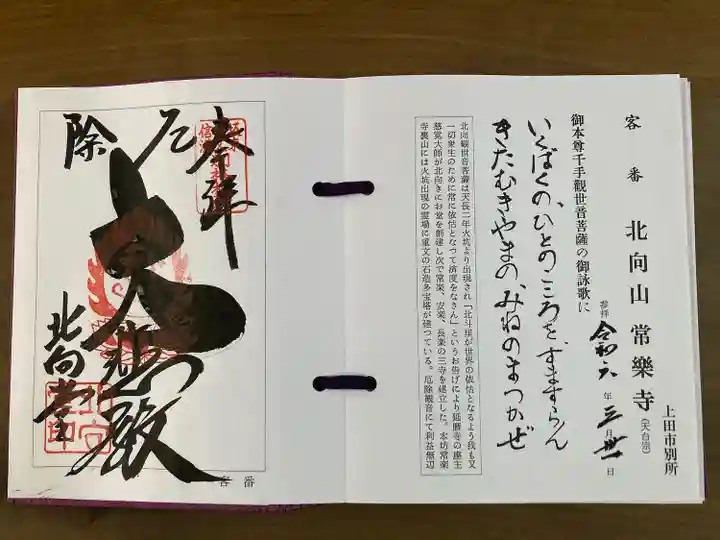 客番　北向山　常樂寺（天台宗）
上田市別所
参拝　令和六年三月卅一日
御本尊千手觀世音菩薩の御詠歌に
いくばくの、ひとのこころを、すますらん
きたむきやまの、みねのまつかぜ
北向観世音菩薩は天長二年火坑より出現され「北斗星が世界の依怙となるよう我も又
一切衆生のために常に依怙となつて済度をなさん」というお告げにより延暦寺の座主
慈覚大師が北向きにお堂を創建し次で常楽、安楽、長楽の三寺を建立した。本坊常楽
寺裏山には火坑出現の霊場に重文の石造多宝塔が建つている。厄除観音にて利益無辺
奉拝
厄除
大悲殿
北向堂
客番